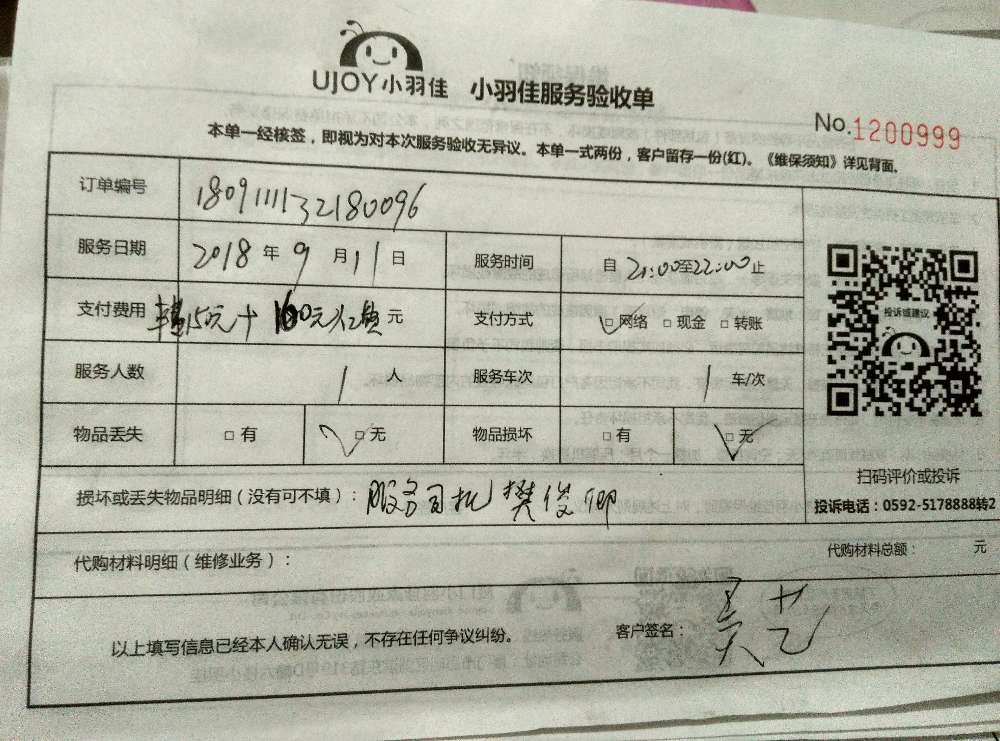 UJOY小羽佳 小羽佳服务验收单
No.1200999
本单一经核签，即视为对本次服务验收无异议。本单一式两份，客户留存一份(红)。《维保须知》详见背面。
订单编号 180911132180096
服务日期 2018 年 9 月 11 日 服务时间 自 21:00至22:00止
支付费用 15元+160元 元 支付方式 □网络 □现金 □转账
投诉或建议
服务人数 1 人 服务车次 1 车/次
物品丢失 □有 □无 物品损坏 □有 □无
扫码评价或投诉
损坏或丢失物品明细（没有可不填）：服务司机 樊俊卿
投诉电话：0592-5178888转2
代购材料明细（维修业务）： 代购材料总额： 元
以上填写信息已经本人确认无误，不存在任何争议纠纷。 客户签名： 吴艺